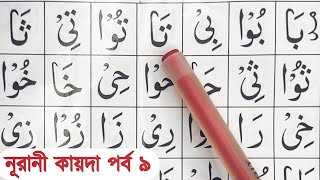 بَا بُوْا بِىْ تَا تُوْا تِىْ ثَا
ثُوْا ثِىْ حَا حُوْا حِىْ خَا خُوْا
خِىْ رَا رِىْ زَا زُوْا زِىْ
নূরানী কায়দা পর্ব ৯